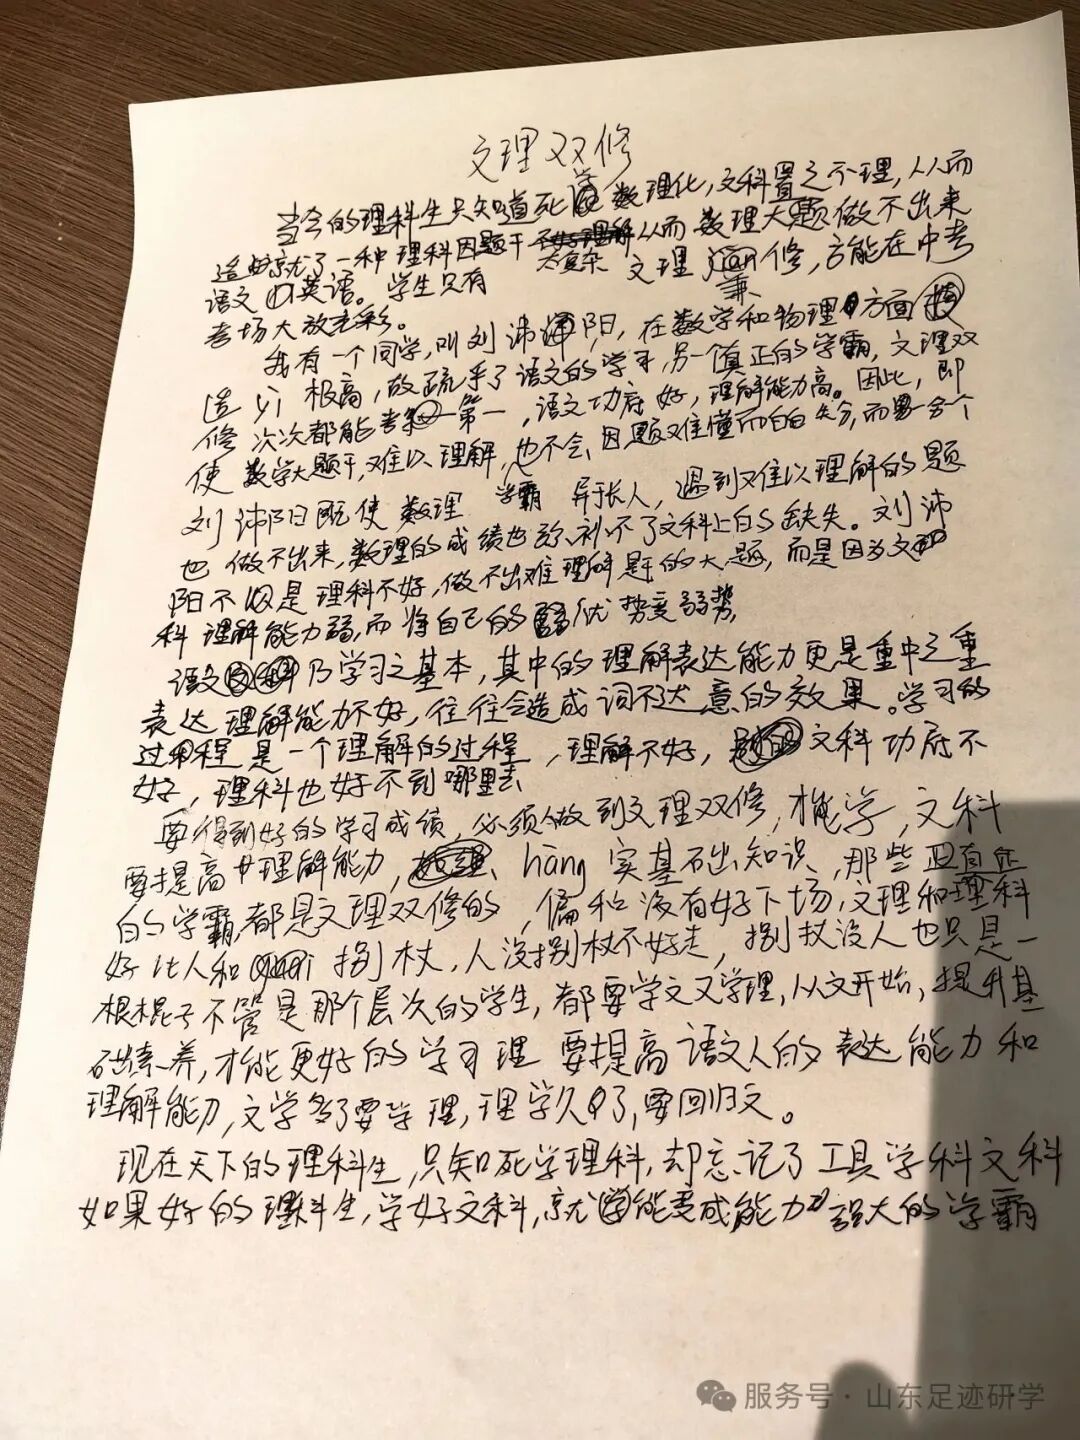 文理双修
当今的理科生只知道死学数理化,文科置之不理,从而
造就了一种理科因题干太复杂从而数理大题做不出来
语文 英语。学生只有 文理兼修,方能在中考
考场大放光彩。
我有一个同学,叫刘沛阳,在数学和物理方面
造yì极高,故疏乎了语文的学习,另一个真正的学霸,文理双
修 次次都能考第一,语文功底好,理解能力高。因此,即
使数学大题干,难以理解,也不会因题难懂而白白失分,而另一个
刘沛阳既使数理学霸异于长人,遇到难以理解的题
也做不出来,数理的成绩也弥补不了文科上的缺失。刘沛
阳不仅是理科不好,做不出难理解题的大题,而是因为文
科理解能力弱,而将自己的优势变弱势,
语文乃学习之基本,其中的理解表达能力更是重中之重
表达理解能力不好,往往会造成词不达意的效果。学习的
过程是一个理解的过程,理解不好,文科功底不
好,理科也好不到哪里去
要得到好的学习成绩,必须做到文理双修,才能学,文科
要提高理解能力,hāng实基础知识,那些真正
的学霸,都是文理双修的,偏和没有好下场,文理和理科
好比人和拐杖,人没拐杖不好走,拐杖没人也只是一
根棍子不管是那个层次的学生,都要学文又学理,从文开始,提升基
础素养,才能更好的学习理 要提高语文人的表达能力和
理解能力,文学多了要学理,理学久了,要回归文。
现在天下的理科生,只知死学理科,却忘记了工具学科文科
如果好的理科生,学好文科,就能变成能力强大的学霸
服务号·山东足迹研学